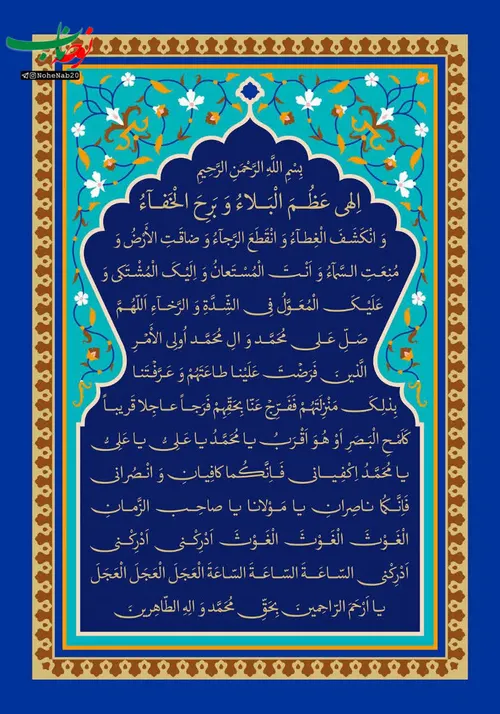 نوحه ناب
NoheNab20
بِسْمِ اللَّهِ الرَّحْمَنِ الرَّحِيمِ
اِلهى عَظُمَ الْبَلاءُ وَ بَرِحَ الْخَفآءُ
وَ انْكَشَفَ الْغِطآءُ وَ انْقَطَعَ الرَّجآءُ وَ ضاقَتِ الأَرْضُ وَ
مُنِعَتِ السَّمآءُ وَ اَنْتَ الْمُسْتَعانُ وَ اِلَيْكَ الْمُشْتَكى وَ
عَلَيْكَ الْمُعَوَّلُ فِى الشِّدَّةِ وَ الرَّخآءِ اَللّهُمَّ
صَلِّ عَلى مُحَمَّد وَ الِ مُحَمَّد اُولِى الأَمْرِ
الَّذينَ فَرَضْتَ عَلَيْنا طاعَتَهُمْ وَ عَرَّفْتَنا
بِذلِكَ مَنْزِلَتَهُمْ فَفَرِّجْ عَنّا بِحَقِّهِمْ فَرَجاً عاجِلا قَريباً
كَلَمْحِ الْبَصَرِ اَوْ هُوَ اَقْرَبُ يا مُحَمَّدُ يا عَلِىُّ يا عَلِىُّ
يا مُحَمَّدُ اِكْفِيانى فَاِنَّكُما كافِيانِ وَ انْصُرانى
فَاِنَّكُما ناصِرانِ يا مَوْلانا يا صاحِبَ الزَّمانِ
الْغَوْثَ الْغَوْثَ الْغَوْثَ اَدْرِكْنى اَدْرِكْنى
اَدْرِكْنى السّاعَةَ السّاعَةَ السّاعَةَ الْعَجَلَ الْعَجَلَ الْعَجَلَ
يا اَرْحَمَ الرّاحِمينَ بِحَقِّ مُحَمَّد وَ الِهِ الطّاهِرينَ